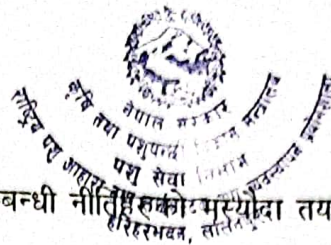 नेपाल सरकार
कृषि तथा पशुपन्छी विकास मन्त्रालय
पशु सेवा विभाग
राष्ट्रिय पशु आहारा
बन्धी नीतिहरूको मस्यौदा तय
हरिहरभवन, ललित